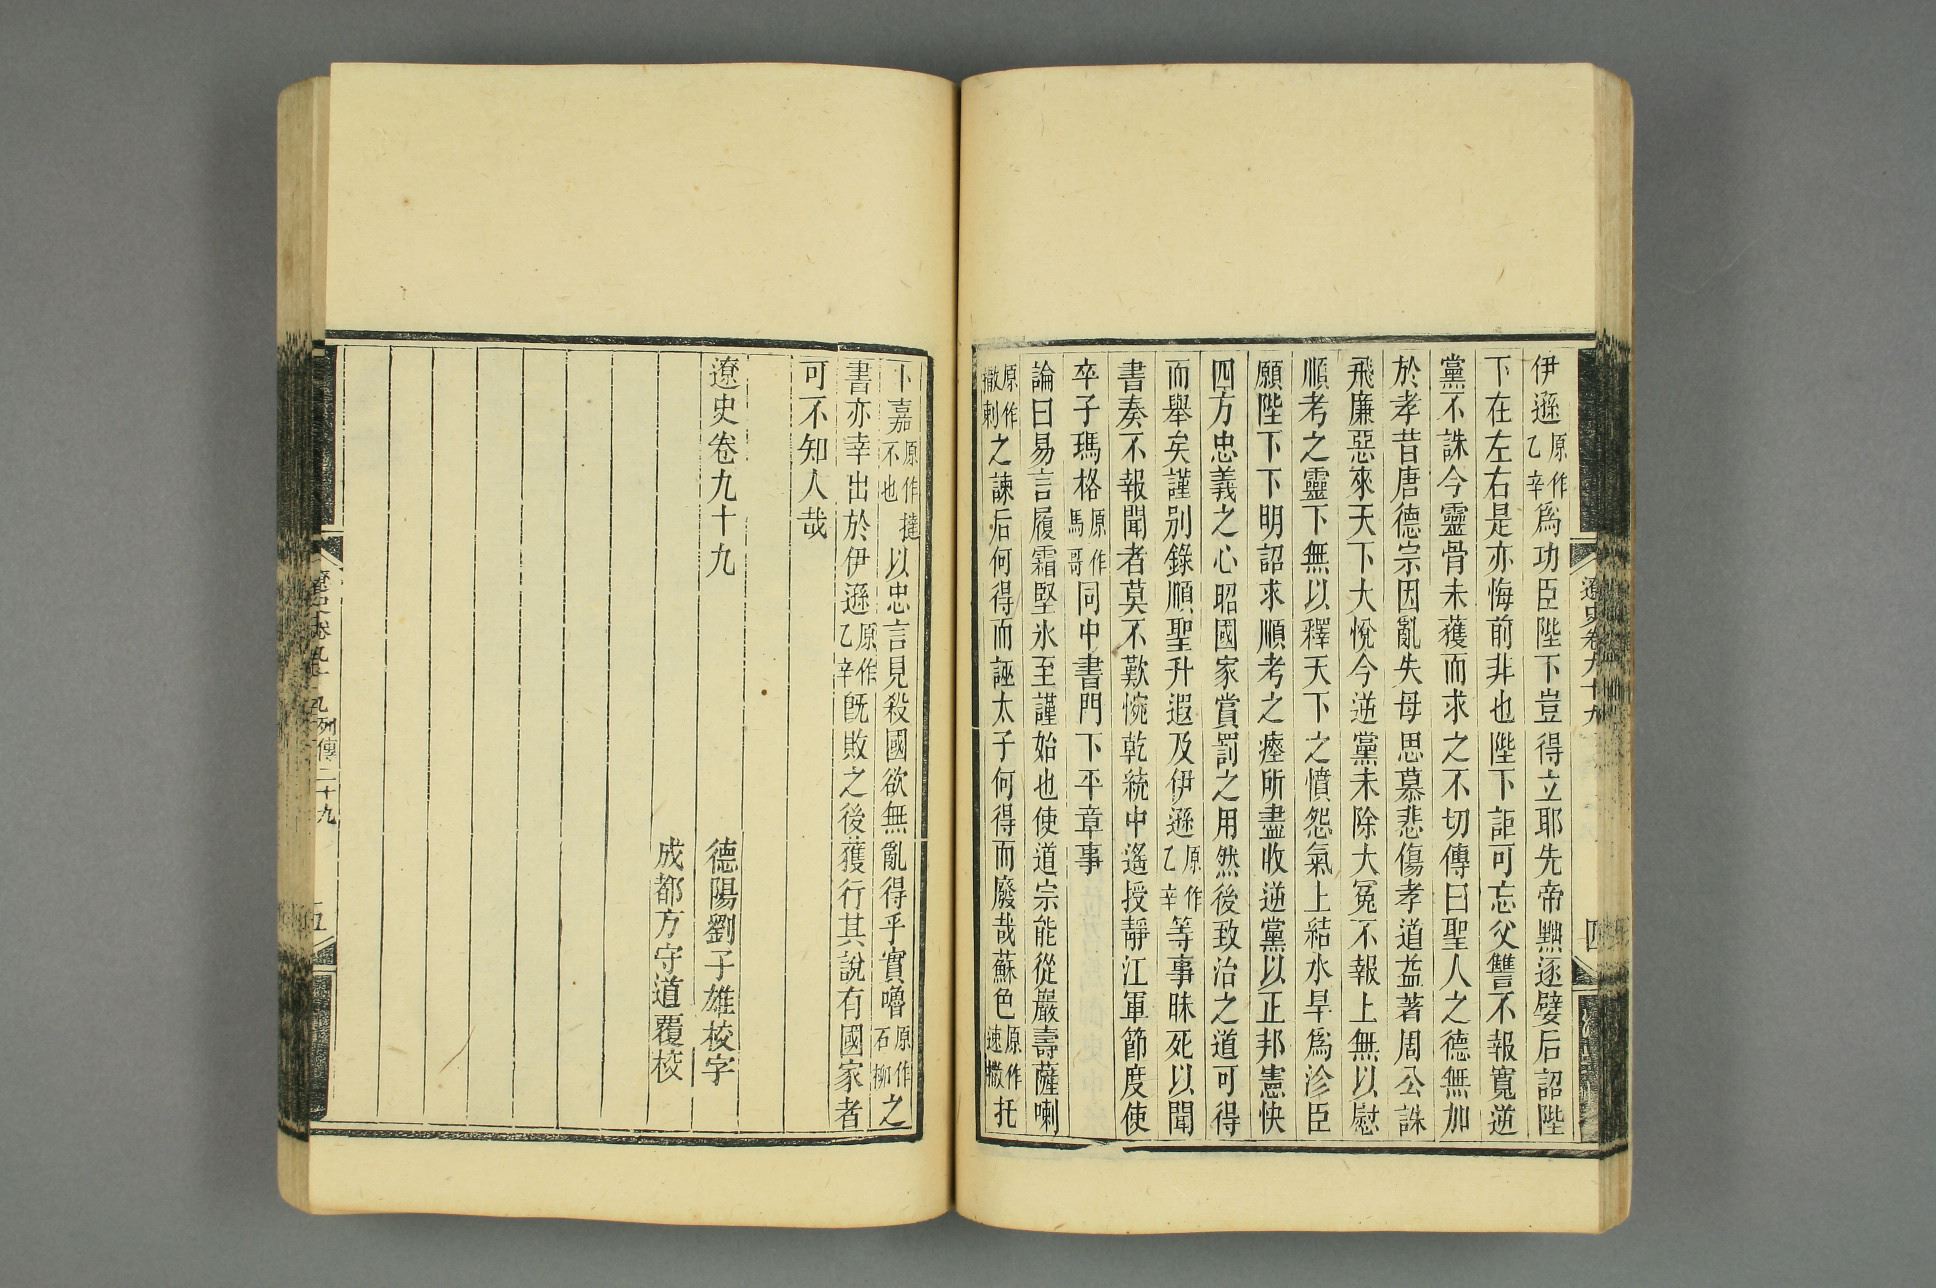 伊遜原作乙辛為功臣陛下豈得立耶先帝黜逐嬖后詔陛
下在左右是亦悔前非也陛下詎可忘父讐不報寬逆
黨不誅今靈骨未獲而求之不切傳曰聖人之德無加
於孝昔唐德宗因亂失母思慕悲傷孝道益著周公誅
飛廉惡來天下大悅今逆黨未除大冤不報上無以慰
順考之靈下無以釋天下之憤怨氣上結水旱為沴臣
願陛下下明詔求順考之瘞所盡收逆黨以正邦憲快
四方忠義之心昭國家賞罰之用然後致治之道可得
而舉矣謹別錄順聖升遐及伊遜原作乙辛等事昧死以聞
書奏不報聞者莫不歎惋乾統中遙授靜江軍節度使
卒子瑪格原作馬哥同中書門下平章事
論曰易言履霜堅氷至謹始也使道宗能從嚴壽薩喇
原作撒剌之諫后何得而誣太子何得而廢哉蘇色原作速撒托
卜嘉原作撻不也以忠言見殺國欲無亂得乎實嚕原作石柳之
書亦幸出於伊遜原作乙辛既敗之後獲行其說有國家者
可不知人哉
遼史卷九十九
德陽劉子雄校字
成都方守道覆校
遼史卷九十九
四
遼史卷九十九列傳二十九
五